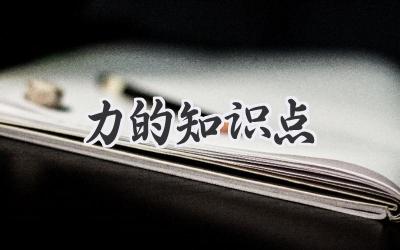 力的知识点